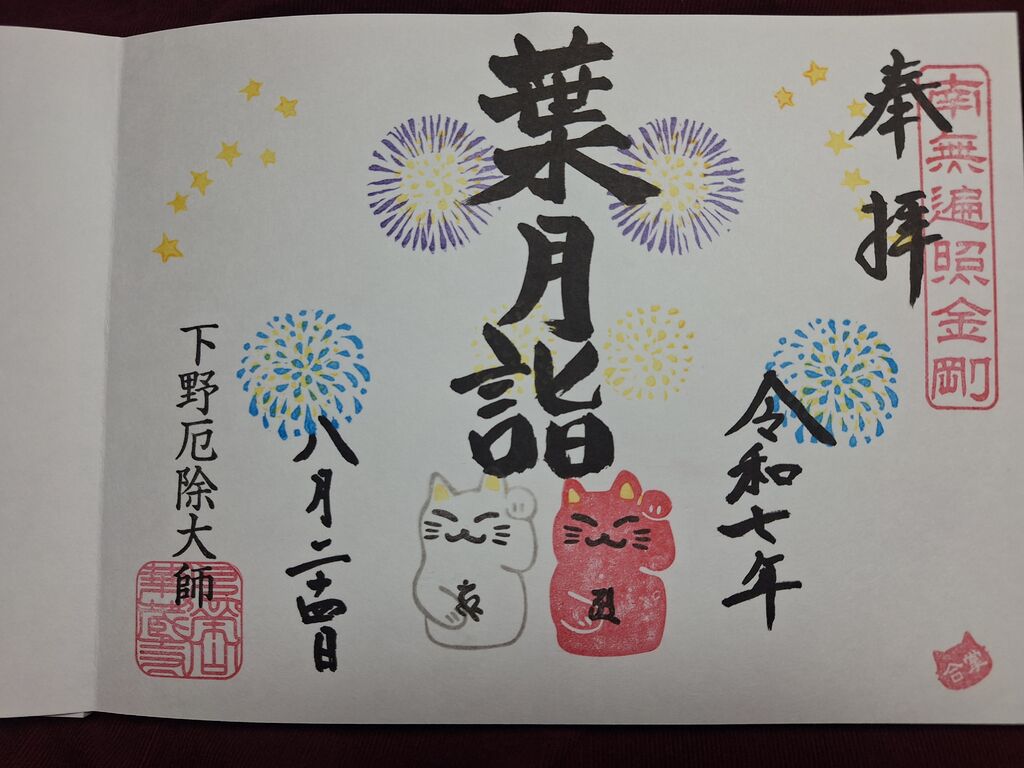 南無遍照金剛
奉拝
令和七年
葉月詣
八月二十四日
下野厄除大師
丑
合掌